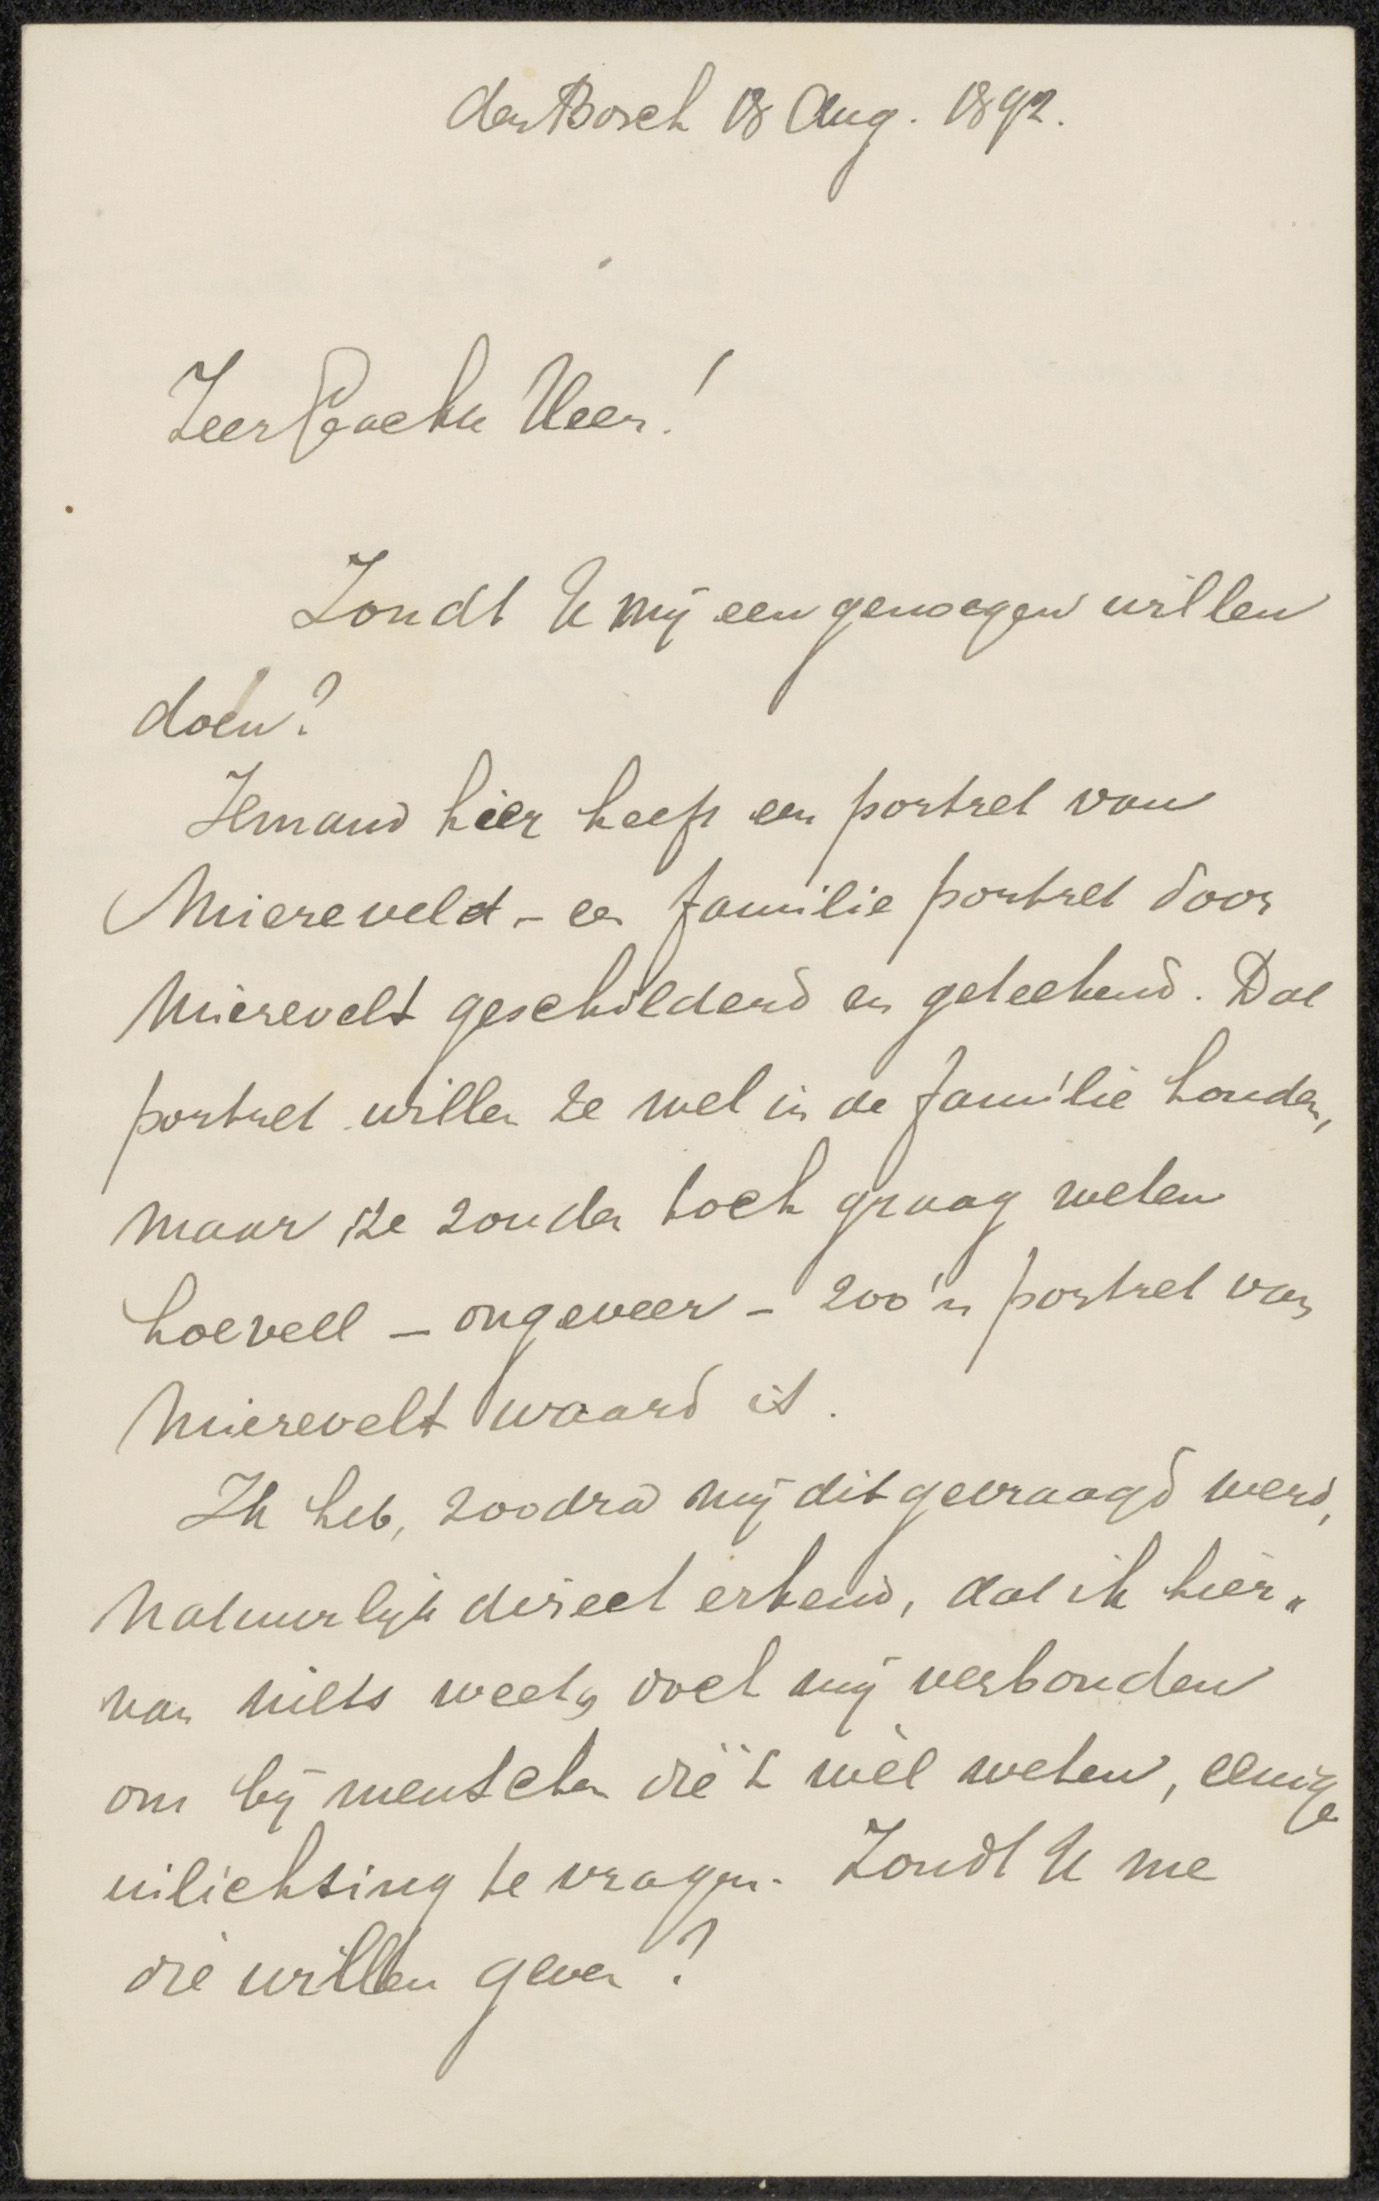 den Bosch 18 Aug. 1892.
Zeer Geachte Heer!
Zoudt U mij een genoegen willen
doen?
Iemand hier heeft een portret van
Miereveld - een familie portret door
Mierevelt geschilderd en geteekend. Dat
portret willen ze wel in de familie houden,
maar ze zouden toch graag weten
hoeveel - ongeveer - zoo'n portret van
Mierevelt waard is.
Ik heb, zoodra mij dit gevraagd werd,
natuurlijk direct erkend, dat ik hier„
van niets weet, doch mij verbonden
om bij menschen die 't wèl weten, eenige
inlichting te vragen. Zoudt U me
die willen geven?